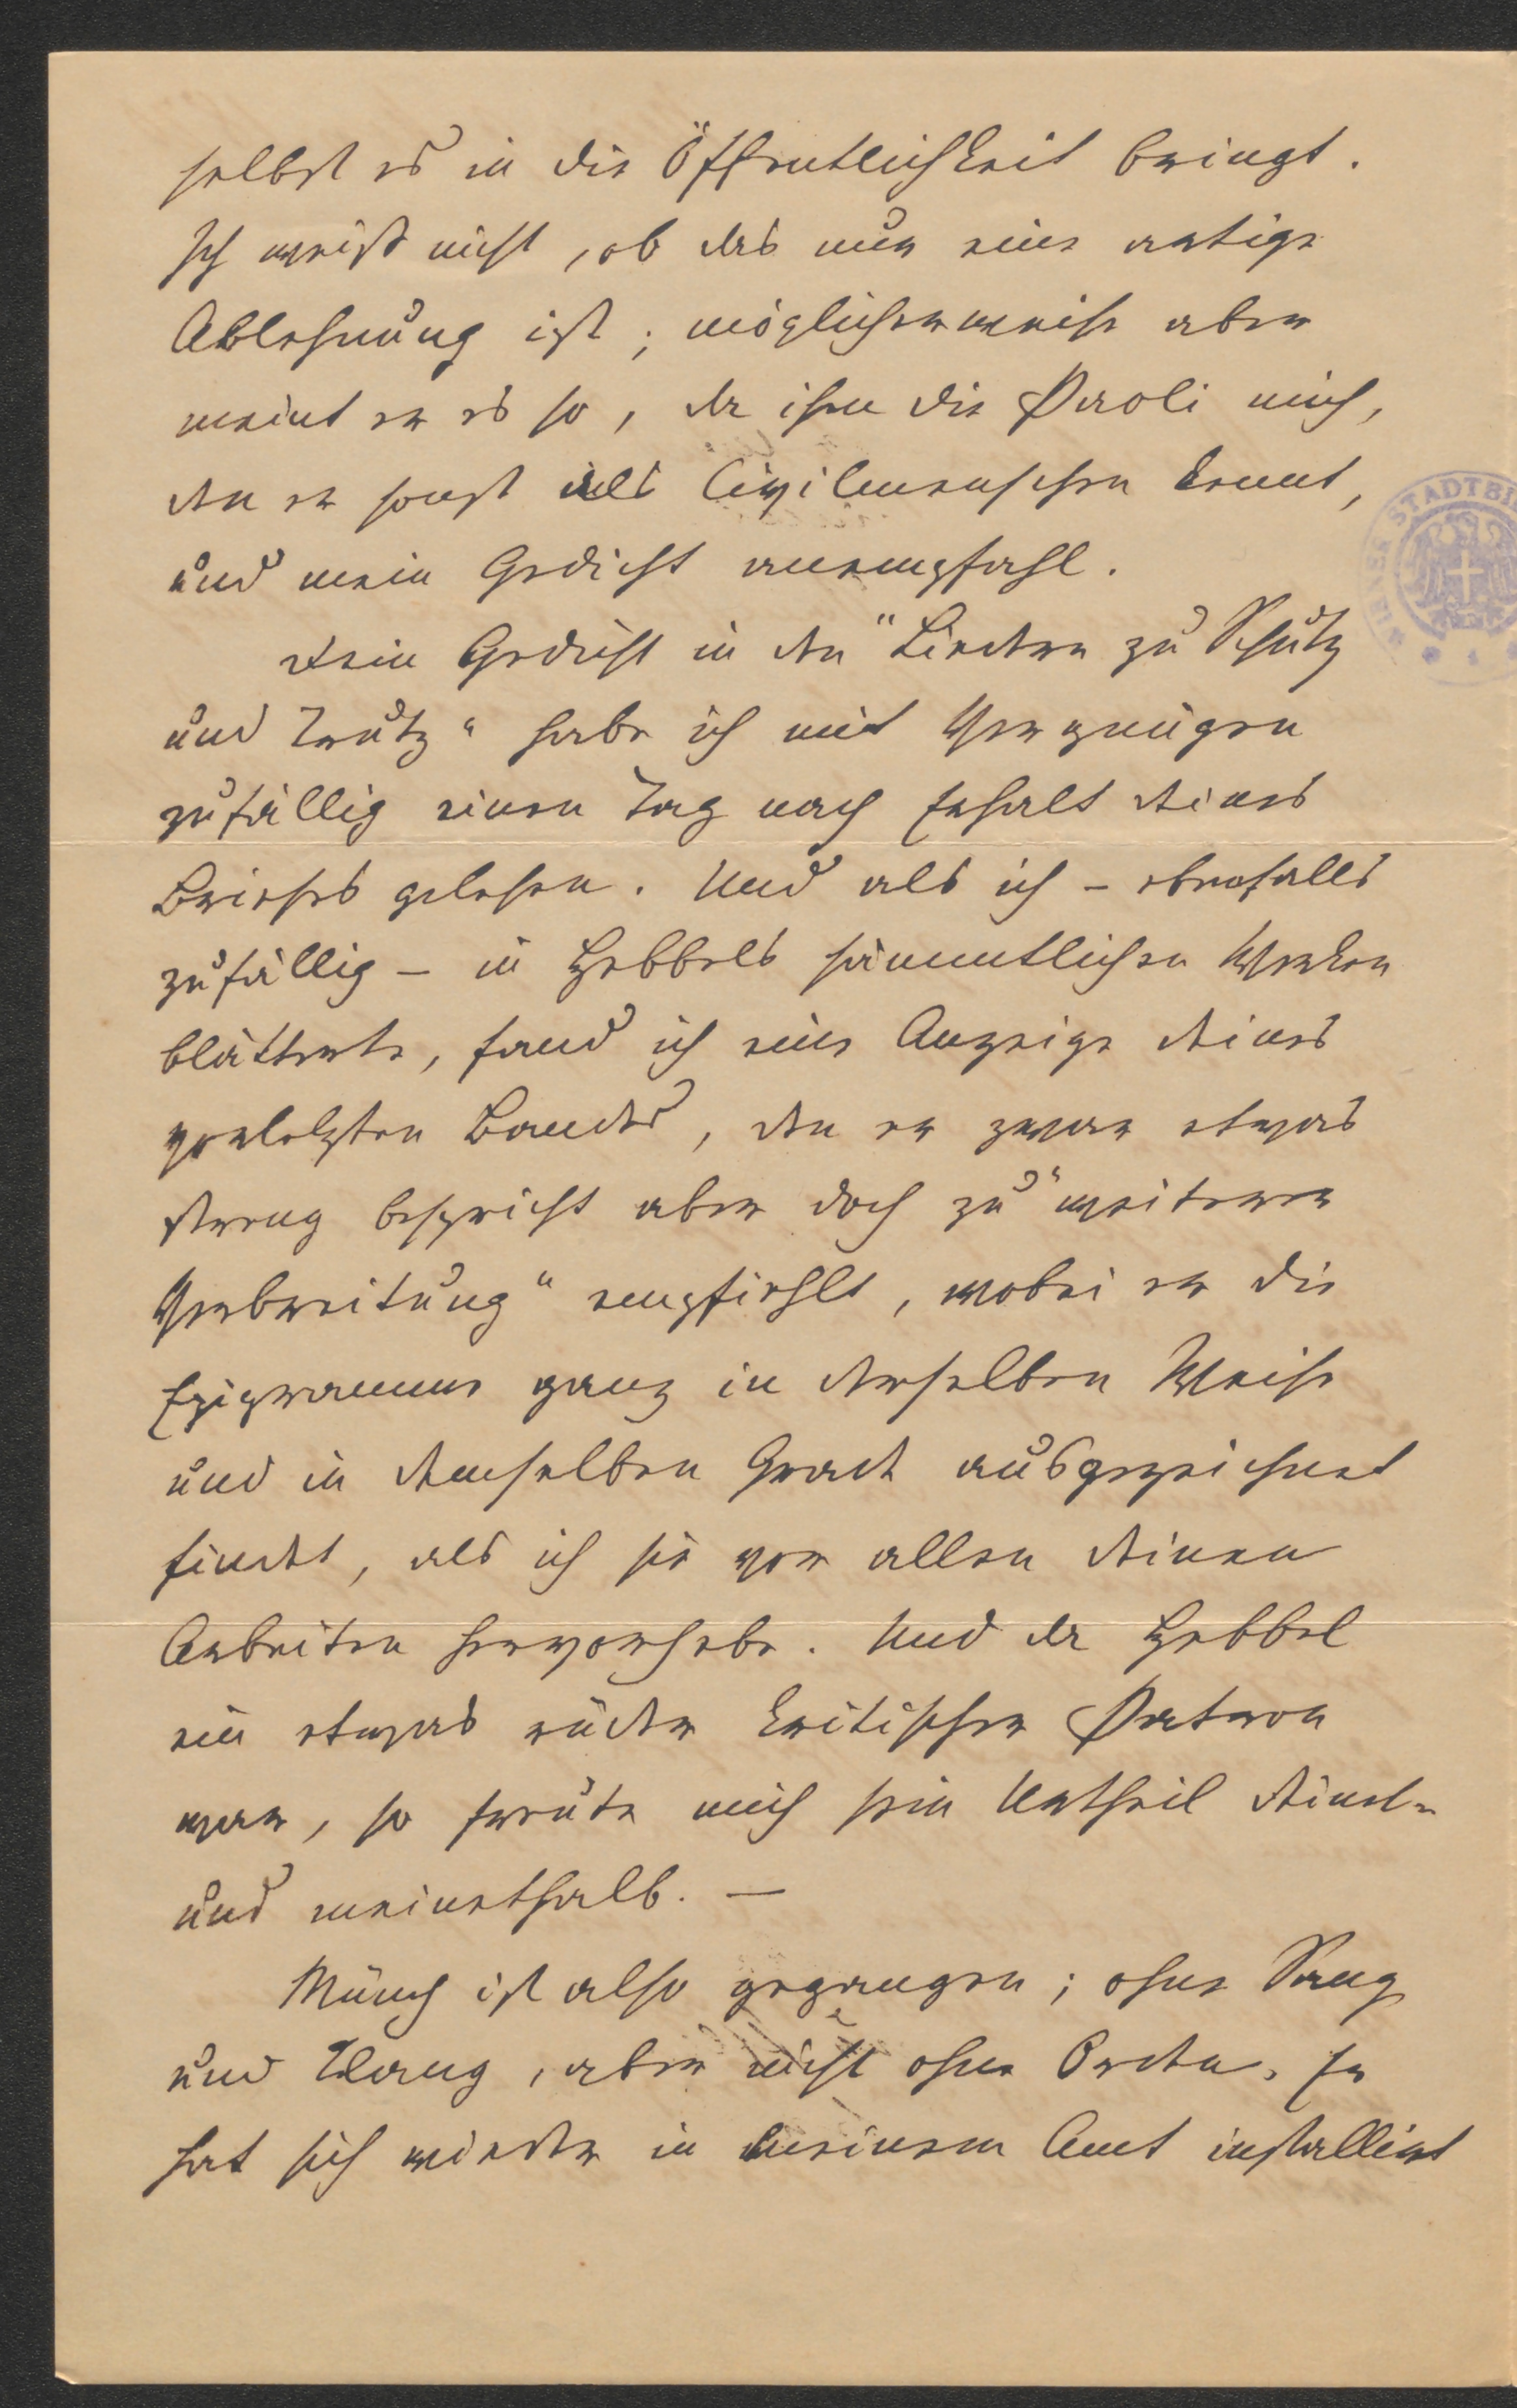 selbst es in die Öffentlichkeit bringt.
Ich weiß nicht, ob das nur eine artige
Ablehnung ist; möglicherweise aber
meint er es so, da ihm die Paoli mich,
den er sonst als Civilmenschen kennt,
und mein Gedicht anempfahl.
Dein Gedicht in den "Liedern zu Schutz
und Trutz" habe ich mit Vergnügen
zufällig einen Tag nach Erhalt Deines
Briefes gelesen. Und als ich - ebenfalls
zufällig - in Hebbels sämmtlichen Werken
blätterte, fand ich eine Anzeige Deines
vorletzten Bandes, den er zwar etwas
streng bespricht aber doch zu "weiterer
Verbreitung" empfiehlt, wobei er die
Epigramme ganz in derselben Weise
und in demselben Grade ausgezeichnet
findet, als ich sie vor allen Deinen
Arbeiten hervorhebe. Und da Hebbel
ein etwas rüder kritischer Patron
war, so freute mich sein Urtheil Deinet-
und meinethalb. —
Münch ist also gegangen; ohne Sang
und Klang, aber nicht ohne Orden. Er
hat sich wieder in meinem Amt installirt
STADTBI